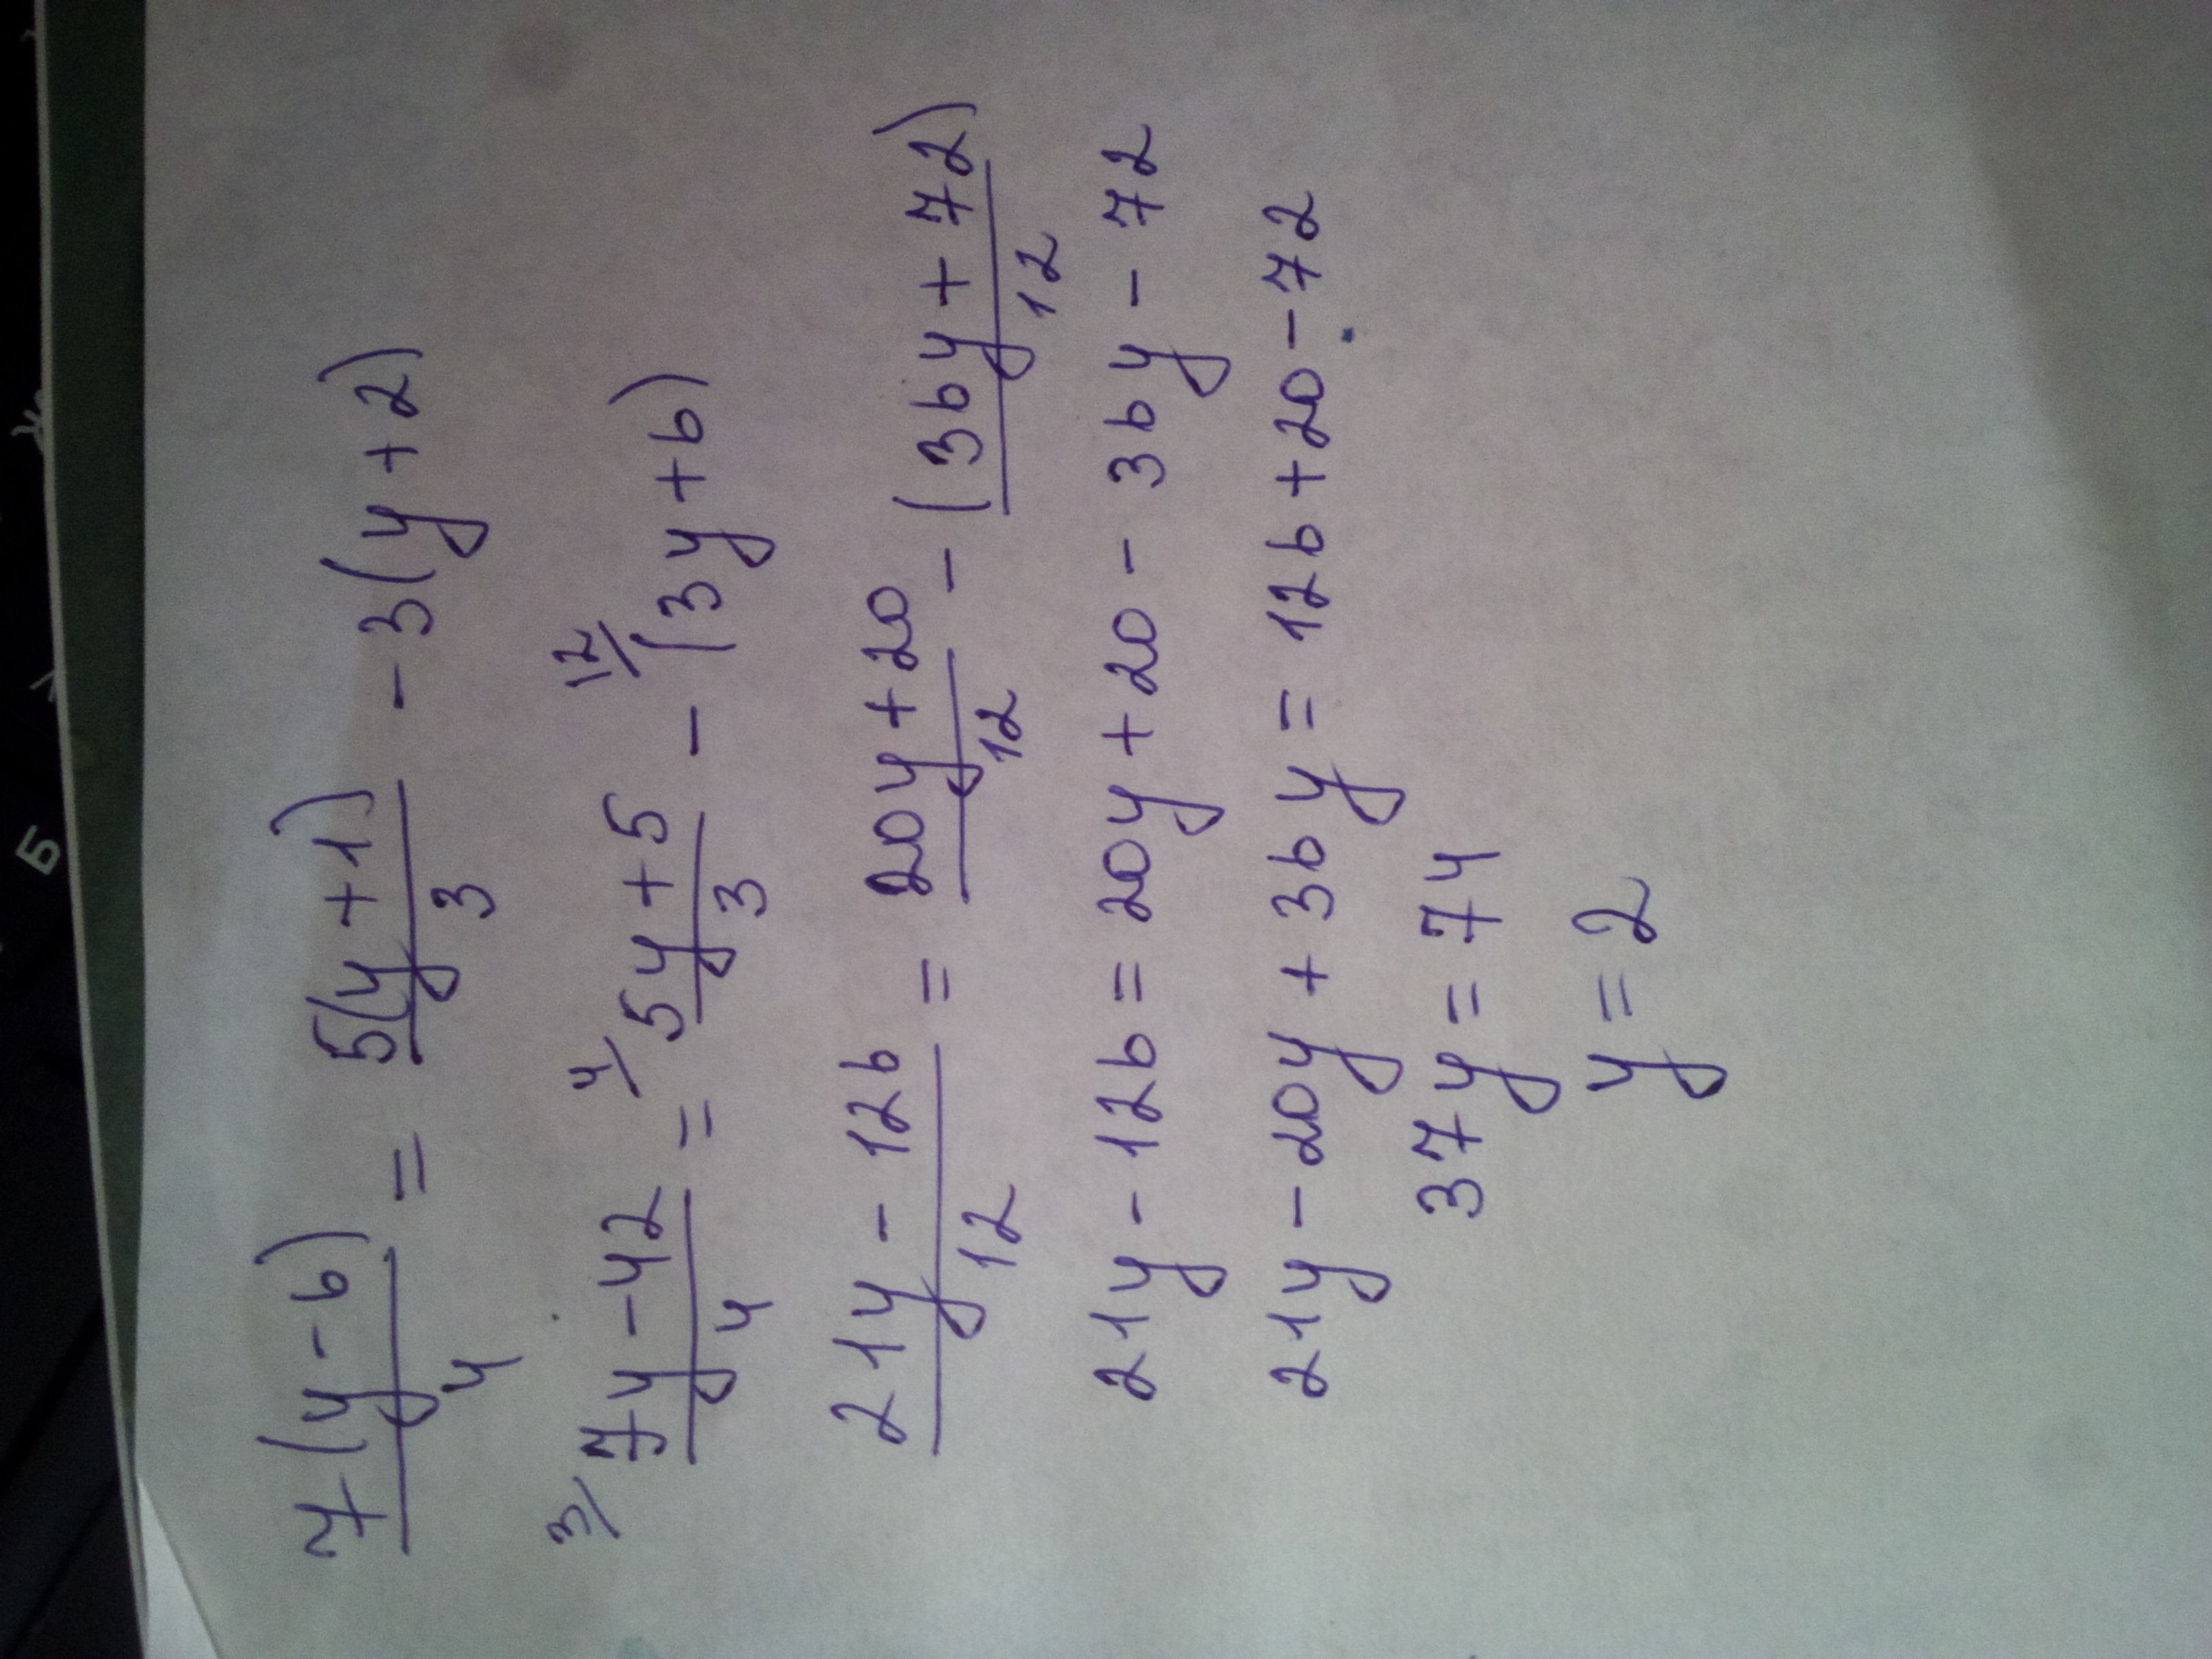 7(y-6)/4 = 5(y+1)/3 - 3(y+2)
3/ 7y-42/4 = 4/ 5y+5/3 - 12/ (3y+6)
21y - 126/12 = 20y+20/12 - (36y+72)/12
21y - 126 = 20y + 20 - 36y - 72
21y - 20y + 36y = 126 + 20 - 72
37y = 74
y = 2
Б